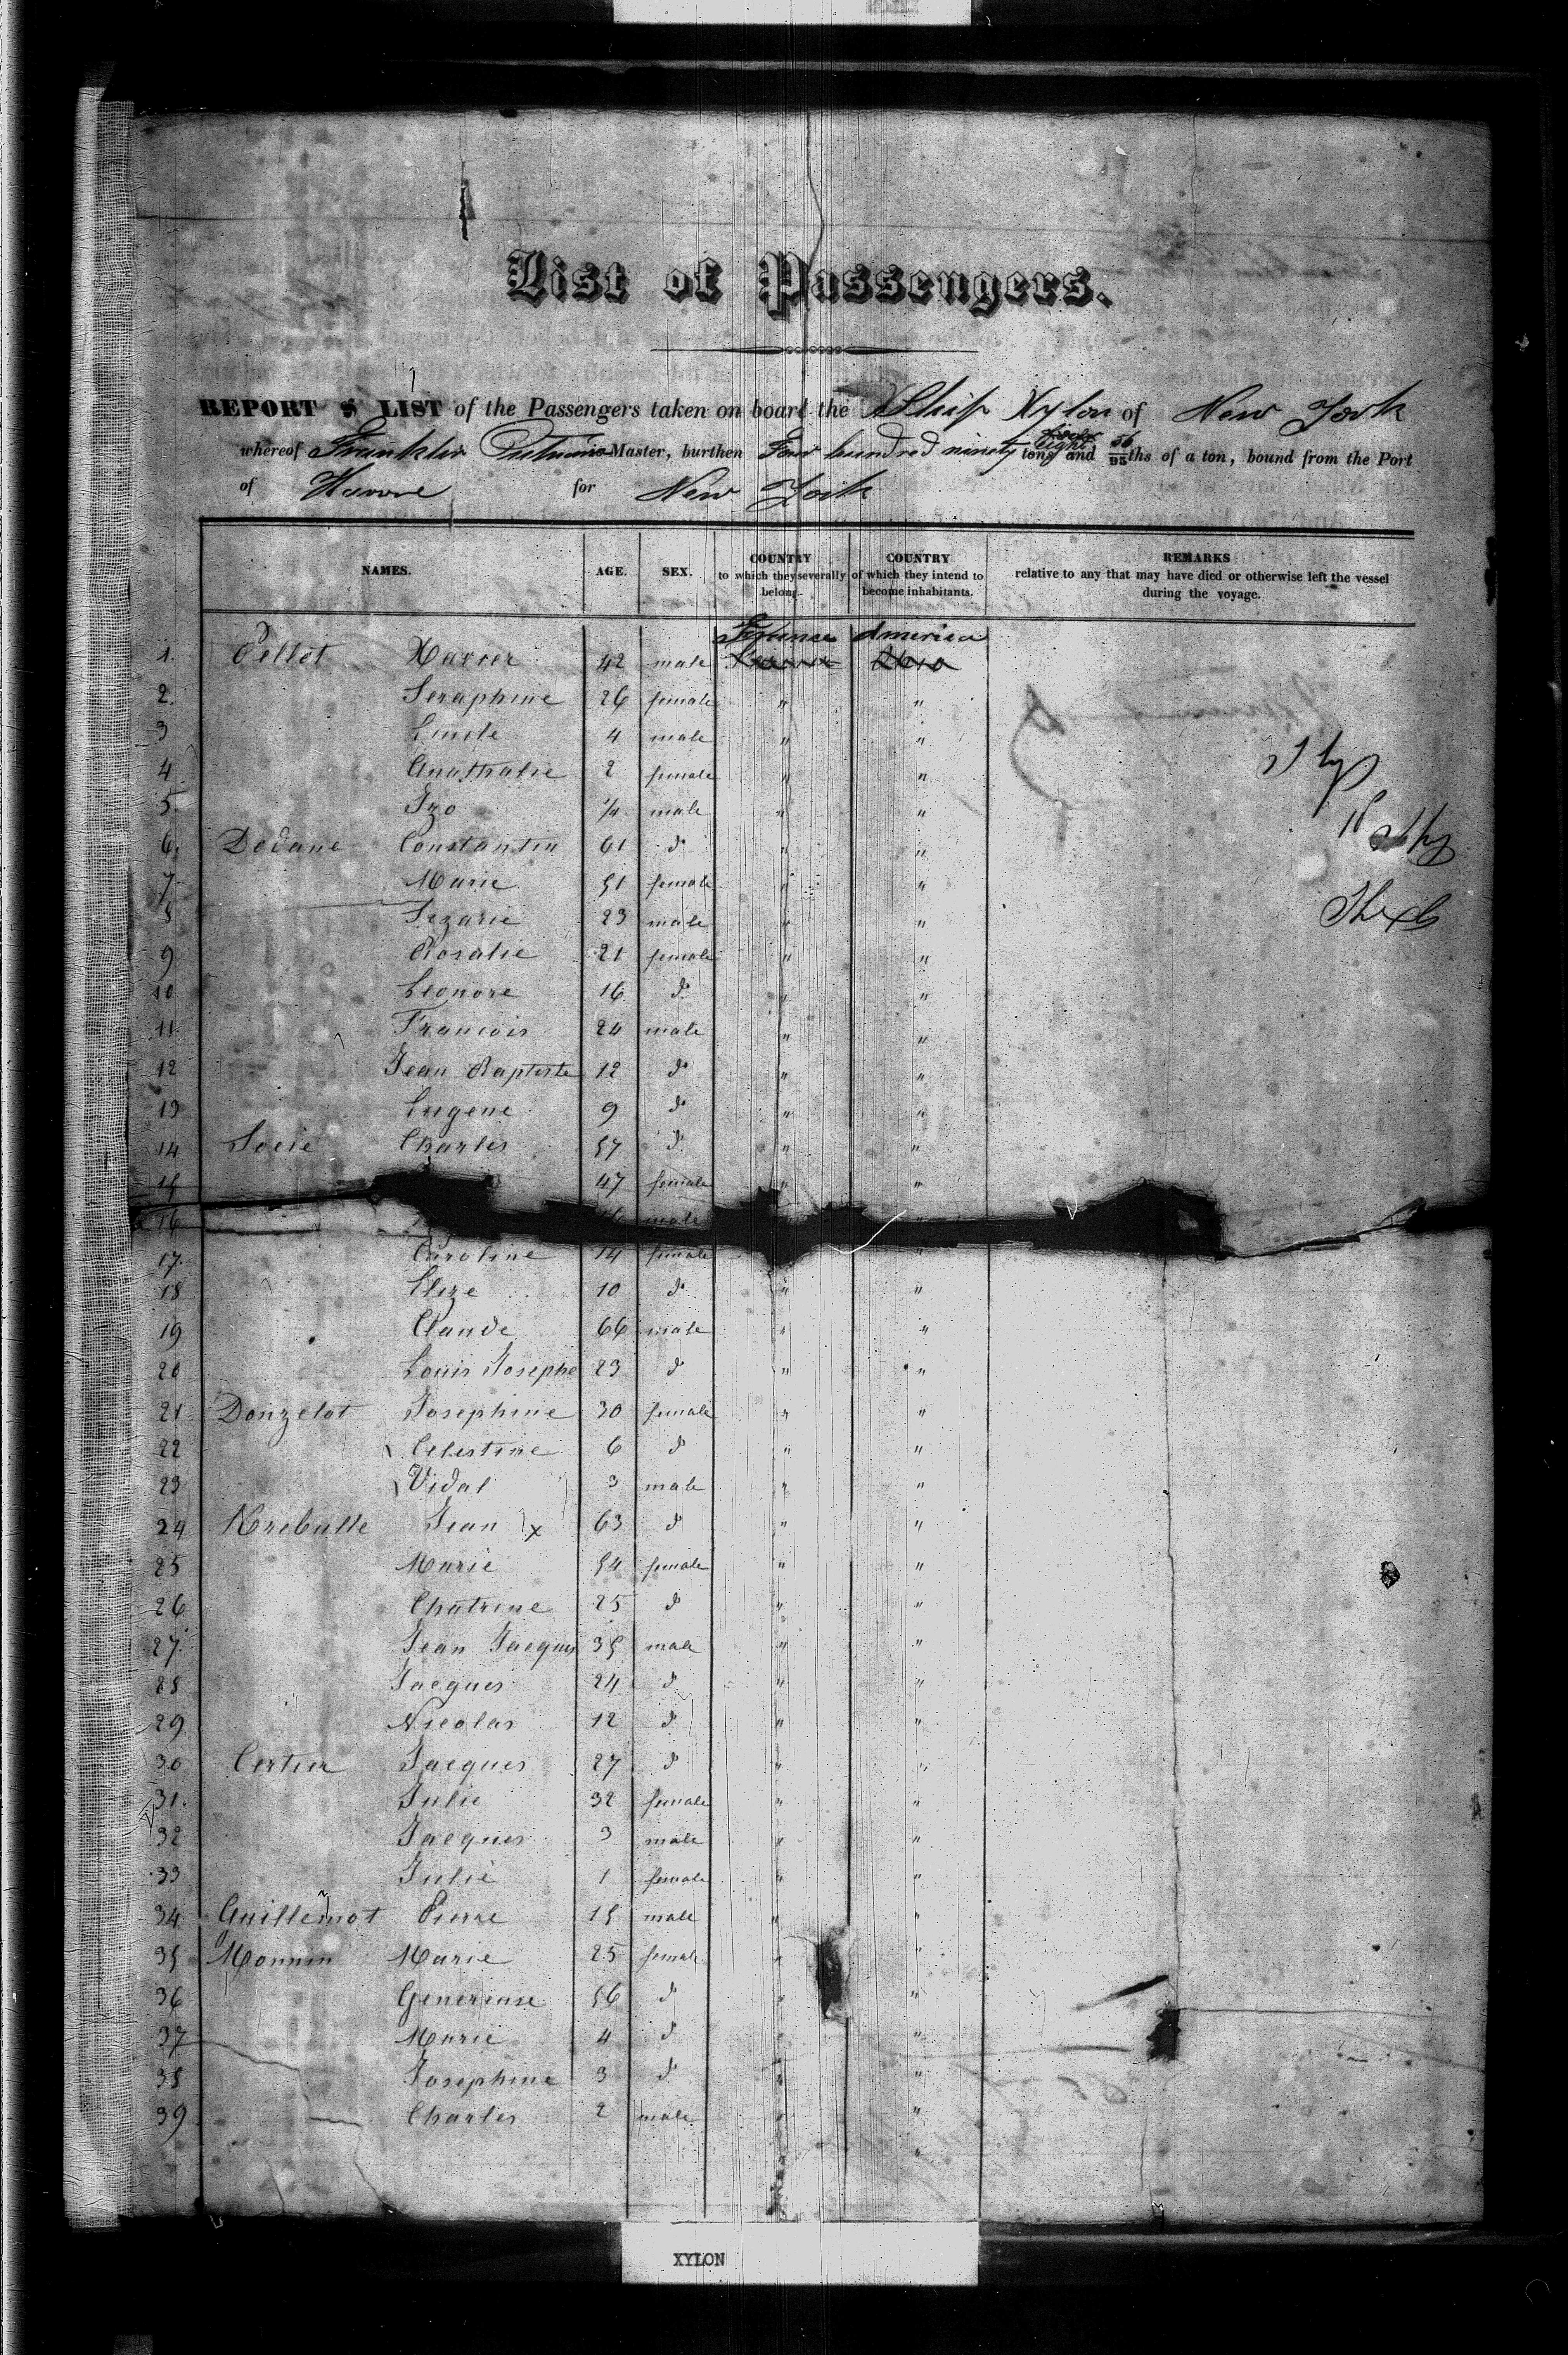 List of Passengers.
REPORT & LIST of the Passengers taken on board the Ship Xylon of New York
whereof Franklin Master, burthen Four hundred ninety eight tons and 36/95ths of a ton, bound from the Port
of Havre for New York
NAMES. AGE. SEX. COUNTRY to which they severally belong. COUNTRY of which they intend to become inhabitants. REMARKS relative to any that may have died or otherwise left the vessel during the voyage.
France America
1. Pellot Xavier 42 male
2. Seraphine 26 female " "
3 4 male " "
4 Anathalie 2 female " "
5. Izo 1/4 male " "
6. Dodane Constantin 61 do " "
7 Marie 51 female " "
8 Sezarie 23 male " "
9 Rosalie 21 female " "
10 Leonore 16 do " "
11 Francois 24 male " "
12 Jean Baptiste 12 do " "
13 Eugene 9 do " "
14 Socie Charles 57 do " "
15 47 female " "
16 male "
17. Caroline 14 female "
18 Elize 10 do " "
19 Claude 66 male " "
20 Louis Josephe 23 do " "
21 Donzelot Josephine 30 female " "
22 Celestine 6 do " "
23 Vidal 3 male " "
24 Krebulle Jean x 63 do " "
25 Marie 54 female " "
26 Chatrine 25 do " "
27. Jean Jacques 35 male " "
28 Jacques 24 do " "
29 Nicolas 12 do " "
30 Certier Jacques 27 do " "
31. Julie 32 female " "
32 Jacques 3 male " "
33 Julie 1 female " "
34 Guillemot Pierre 15 male " "
35 Monnin Marie 25 female " "
36 Genereuse 56 do " "
37 Marie 4 do " "
38 Josephine 3 do " "
39 Charles 2 male " "
"
XYLON